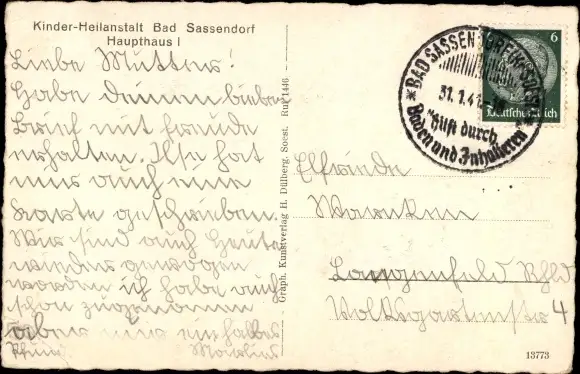 Kinder-Heilanstalt Bad Sassendorf
Haupthaus I
Liebe Mutter!
Habe deinen lieben
Brief mit Freude
erhalten. Ilse hat
mir auch eine
Karte geschrieben.
Wir sind auch heute
wieder gewogen
worden ich habe auch
schon zugenommen
aber nur ein halbes
Graph. Kunstverlag H. Düllberg, Soest. Ruf 1446
BAD SASSENDORF (KR SOEST)
31.1.41
Hilft durch
Baden und Inhalieren
6
Deutsches Reich
Elfriede
Warnken
Langenfeld Rhld
Volksgartenstr 4
13773